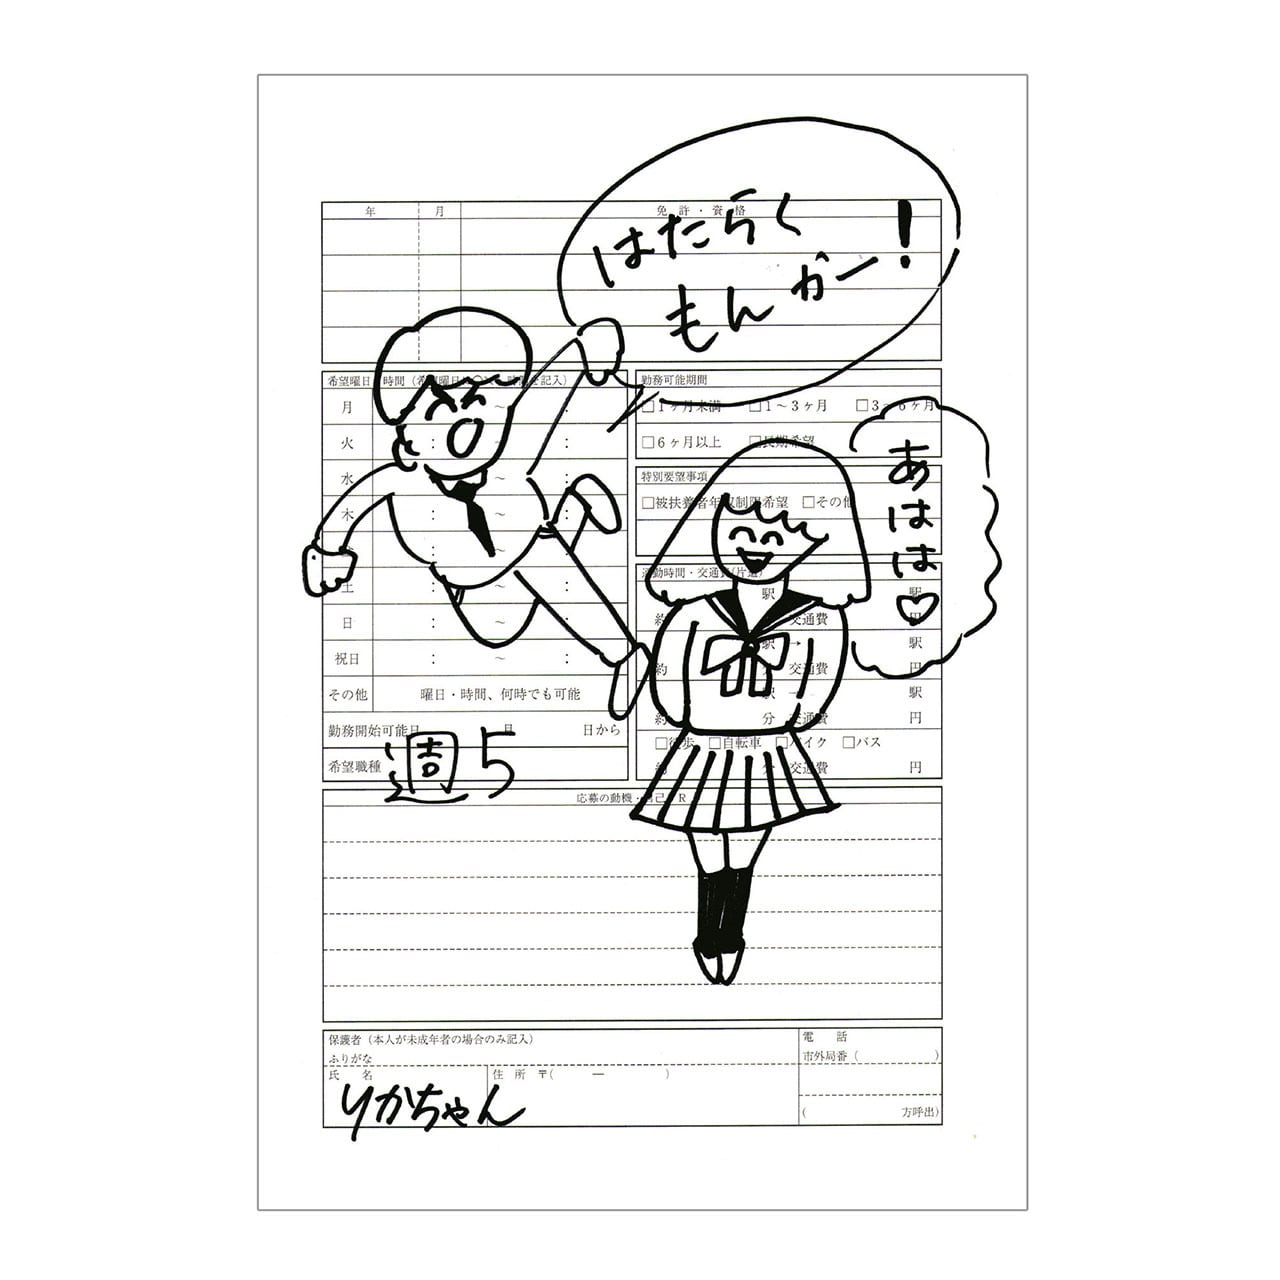 年 月 免許・資格
はたらく
もんかー！
希望曜日 時間（希望曜日に○、時間を記入）
月 ： ～ ：
火 ： ～ ：
水 ～ ：
木 ： ～ ：
： ～ ：
土 ： ～ ：
日 ： ～ ：
祝日 ： ～ ：
その他 曜日・時間、何時でも可能
勤務開始可能日 月 日から
希望職種
週5
勤務可能期間
□1ヶ月未満 □1～3ヶ月 □3～6ヶ月
□6ヶ月以上 □長期希望
特別要望事項
□被扶養者年収制限希望 □その他
あはは♡
通勤時間・交通費(片道)
駅 駅
約 交通費 円
駅 → 駅
約 分 交通費 円
駅 → 駅
約 分 交通費 円
□徒歩 □自転車 □バイク □バス
約 分 交通費 円
応募の動機・自己PR
保護者（本人が未成年者の場合のみ記入）
ふりがな
氏 名 住 所 〒( ー )
りかちゃん
電 話
市外局番 ( )
( 方呼出)